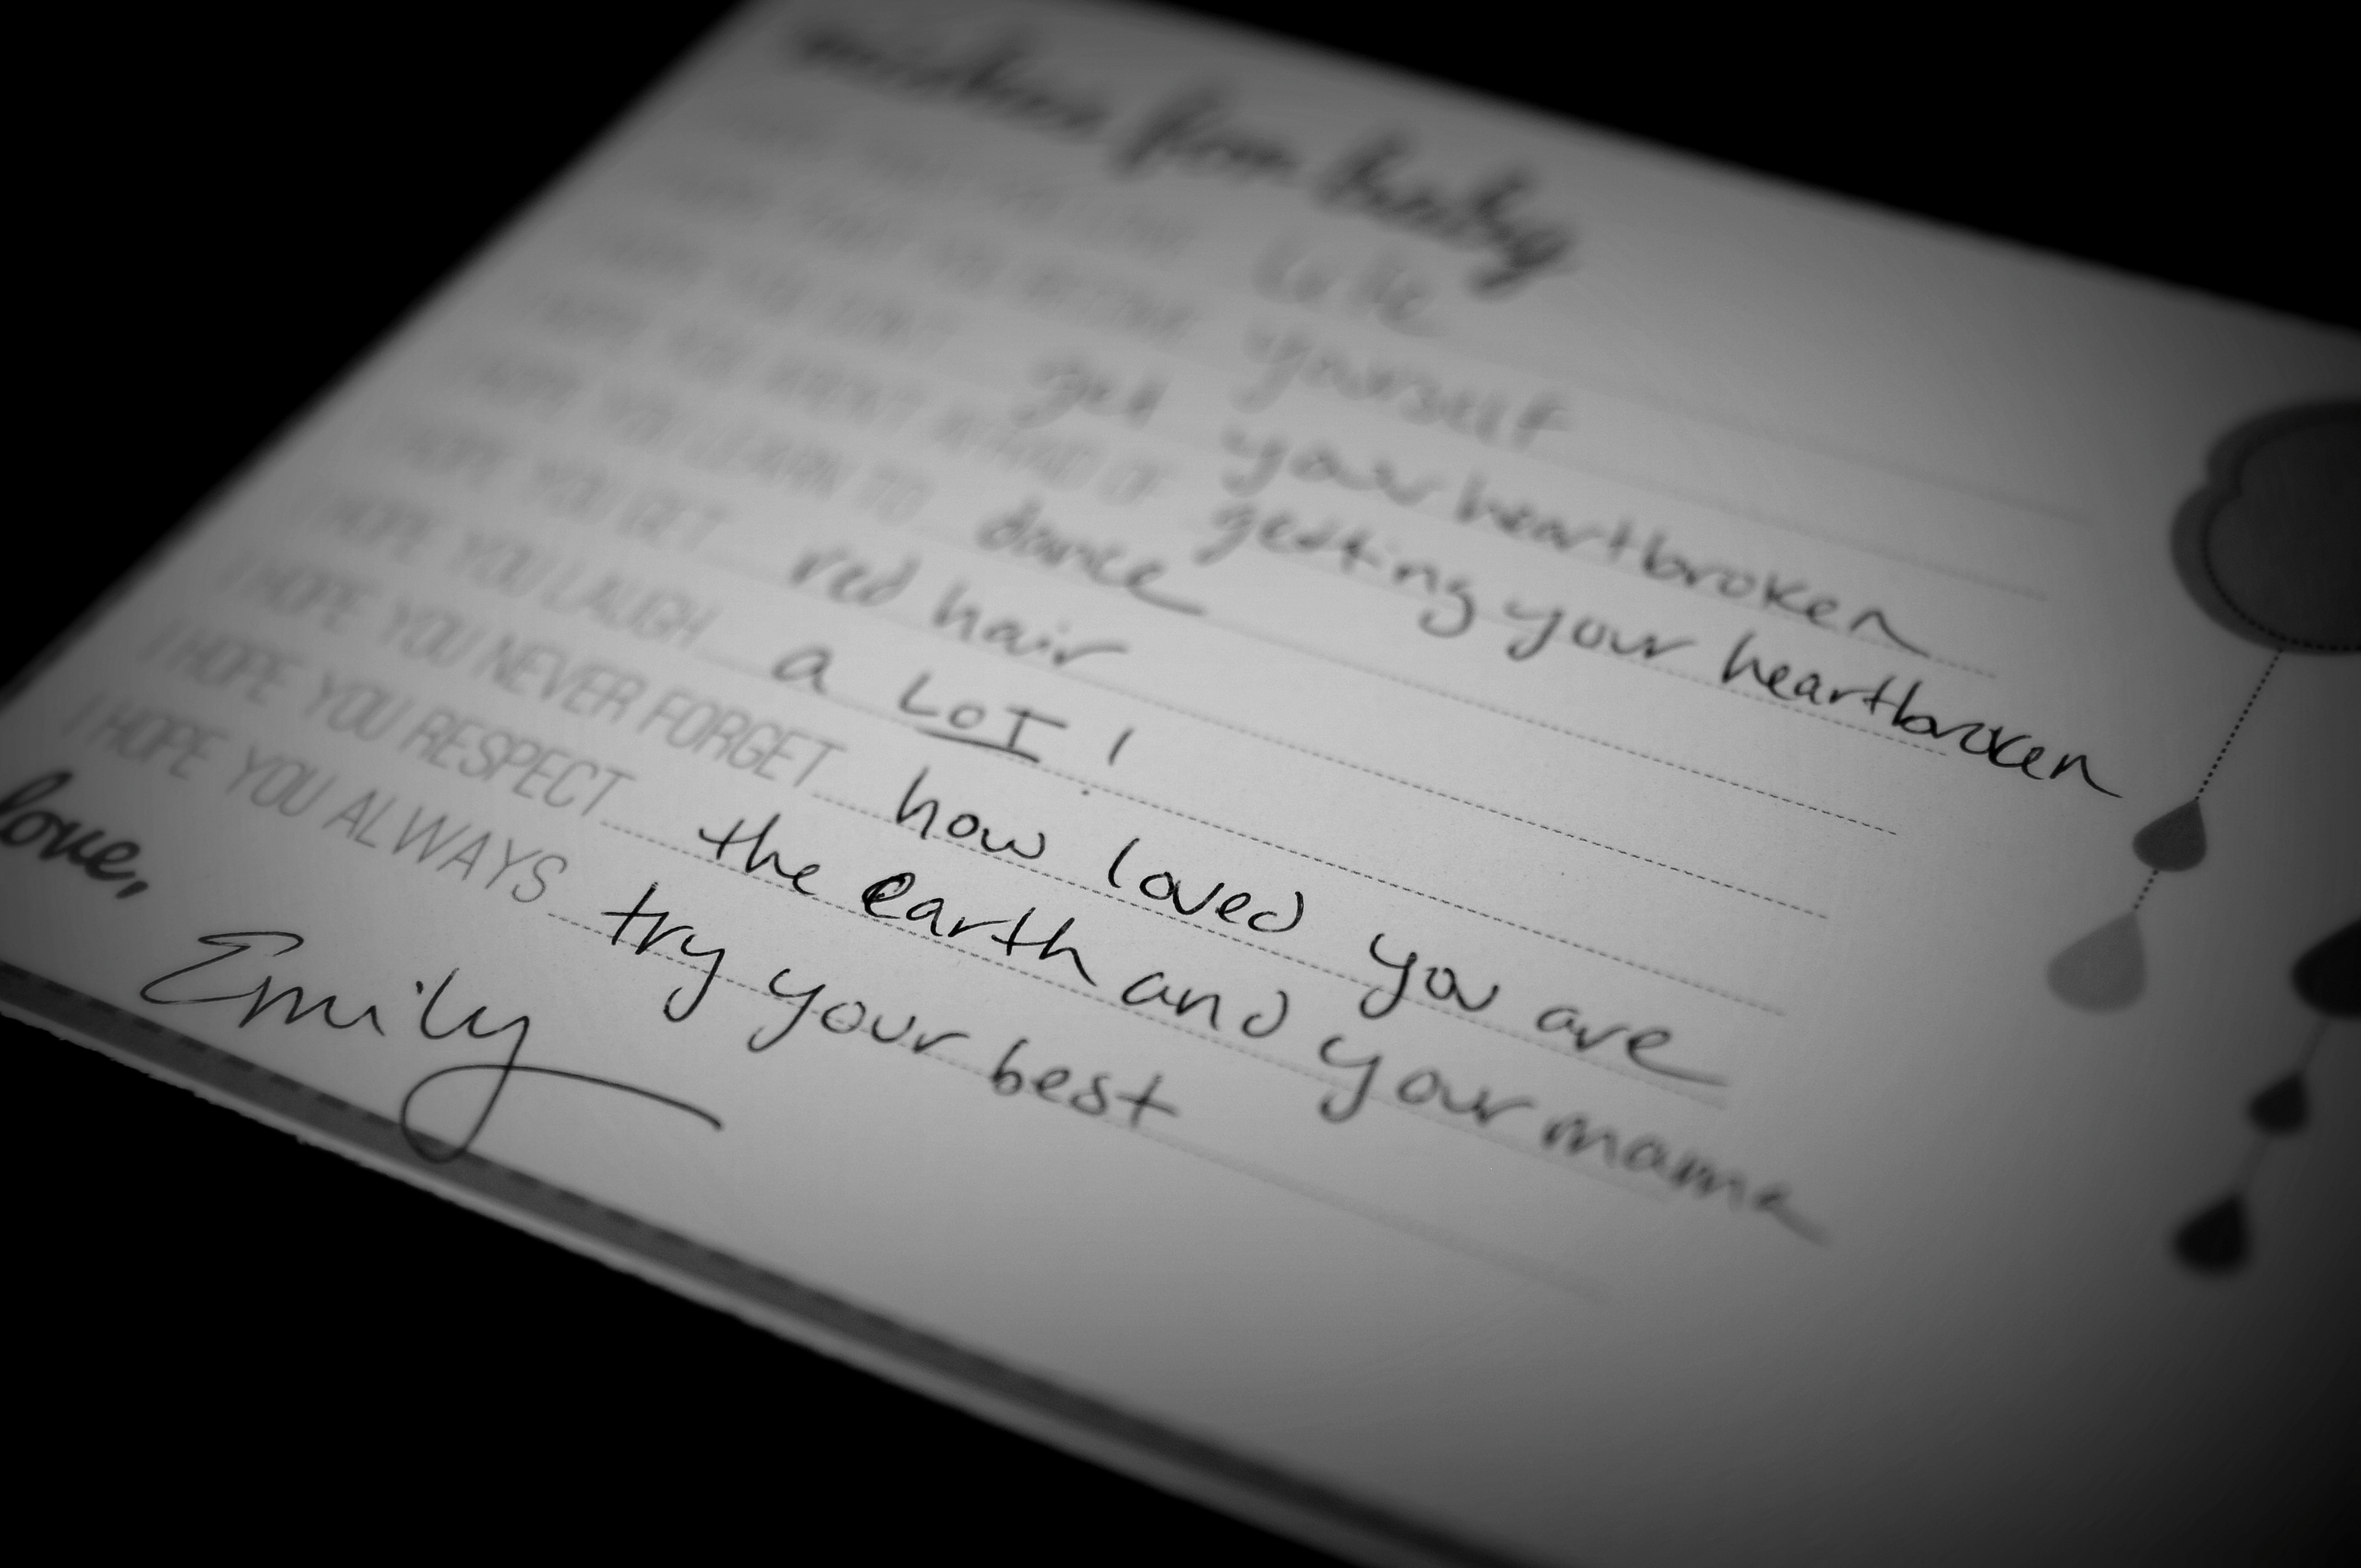 for baby
I HOPE THAT YOU BECOME yourself
I HOPE YOU DON'T get your heartbroken
I HOPE YOU AREN'T AFRAID OF getting your heartbroken
I HOPE YOU LEARN TO dance
I HOPE YOU GET red hair
I HOPE YOU LAUGH a LOT!
I HOPE YOU NEVER FORGET how loved you are
I HOPE YOU RESPECT the earth and your mama
I HOPE YOU ALWAYS try your best
love,
Emily